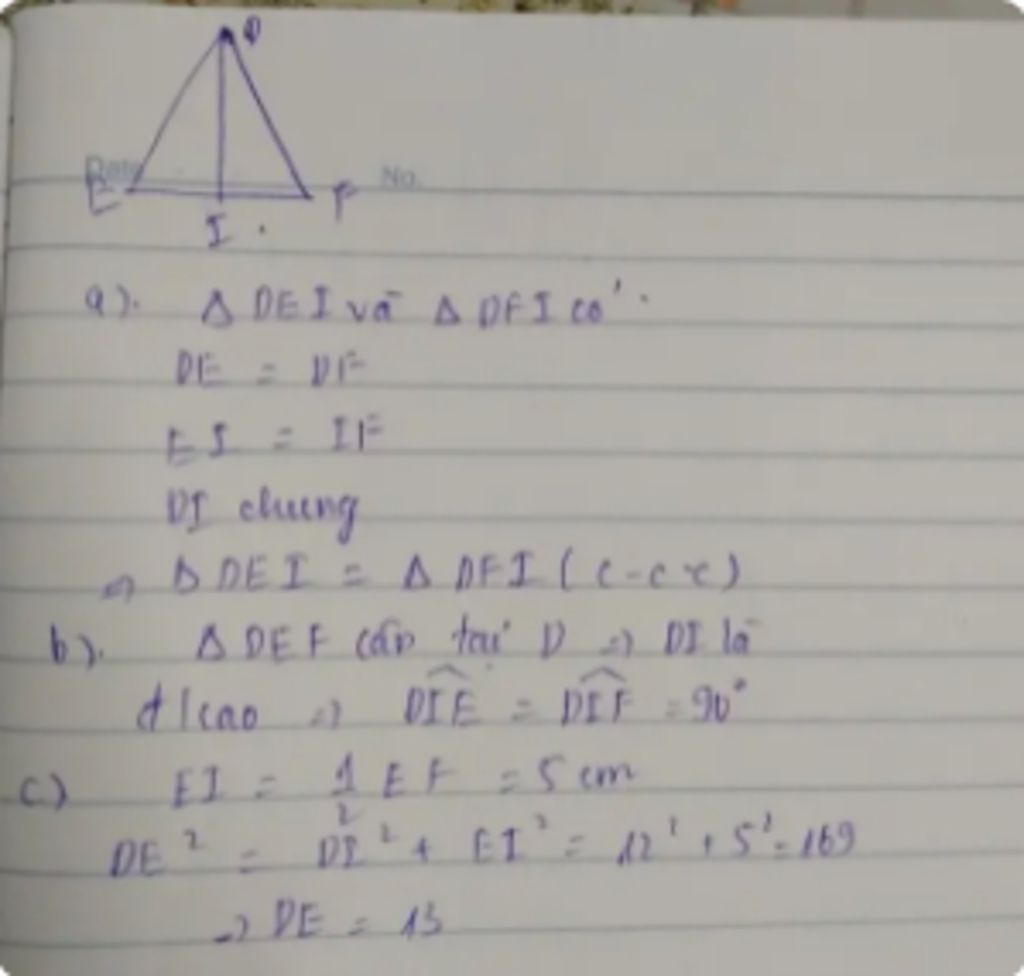 D
Date
No.
E
F
I
a). Δ DEI và Δ DFI có
DE = DF
EI = IF
DI chung
=> Δ DEI = Δ DFI (c-c-c)
b). Δ DEF cân tại D => DI là
đ/cao => DIE = DIF = 90°
c) EI = 1/2 EF = 5 cm
DE² = DI² + EI² = 12² + 5² = 169
=> DE = 13